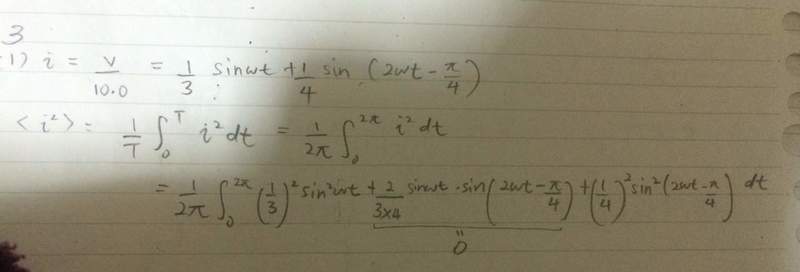 3
(1) i = v/10.0 = 1/3 sinωt + 1/4 sin (2ωt - π/4)
<i²> = 1/T ∫₀ᵀ i² dt = 1/2π ∫₀²π i² dt
= 1/2π ∫₀²π (1/3)² sin²ωt + 2/3×4 sinωt · sin(2ωt - π/4) + (1/4)² sin²(2ωt - π/4) dt
0